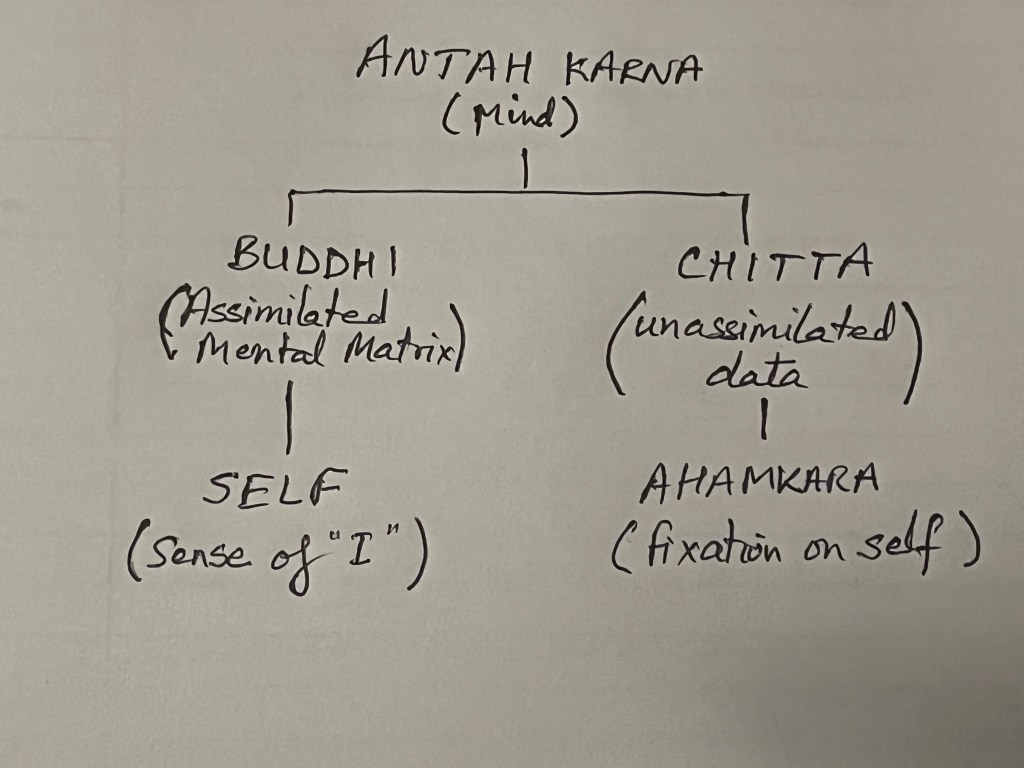 ANTAH KARNA
(Mind)
BUDDHI
(Assimilated
Mental Matrix)
SELF
(Sense of "I")
CHITTA
(unassimilated
data)
AHAMKARA
(fixation on self)